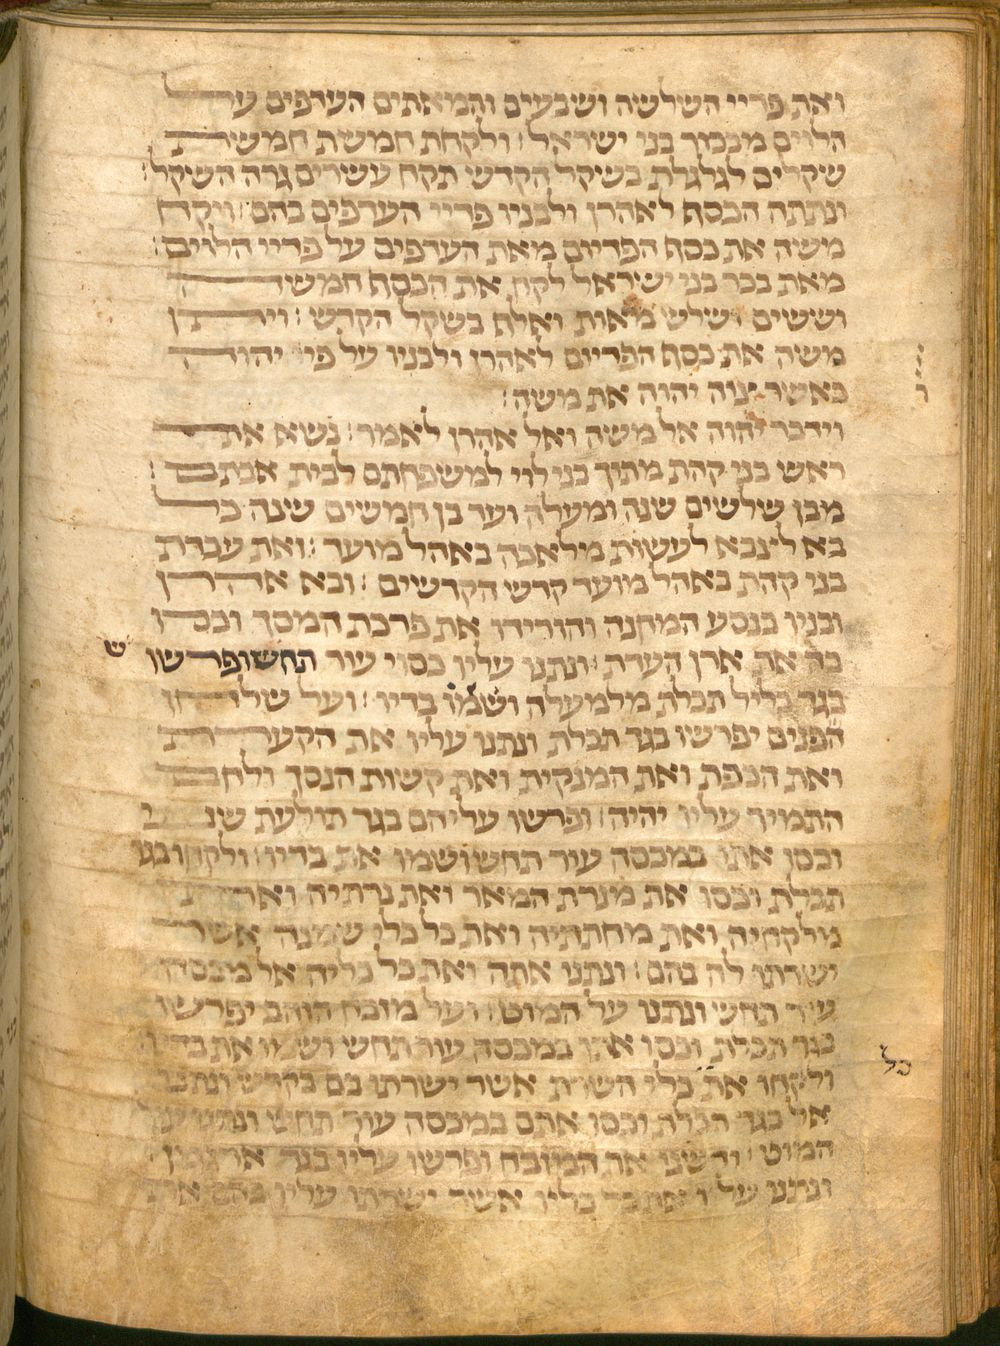 ואת פדויי השלשה ושבעים והמאתים העדפים על
הלוים מבכור בני ישראל : ולקחת חמשת חמשת
שקלים לגלגלת בשקל הקדש תקח עשרים גרה השקל :
ונתתה הכסף לאהרן ולבניו פדויי העדפים בהם : ויקח
משה את כסף הפדיום מאת העדפים על פדויי הלוים :
מאת בכר בני ישראל לקח את הכסף חמשה
וששים ושלש מאות ואלף בשקל הקדש : ויתן
משה את כסף הפדיום לאהרן ולבניו על פי יהוה
כאשר צוה יהוה את משה :
וידבר יהוה אל משה ואל אהרן לאמר : נשא את
ראש בני קהת מתוך בני לוי למשפחתם לבית אבתם :
מבן שלשים שנה ומעלה ועד בן חמשים שנה כל
בא לצבא לעשות מלאכה באהל מועד : זאת עבדת
בני קהת באהל מועד קדש הקדשים : ובא אהרן
ובניו בנסע המחנה והורידו את פרכת המסך וכסו
בה את ארן העדת : ונתנו עליו כסוי עור תחש ופרשו
ש
בגד כליל תכלת מלמעלה ושמו בדיו : ועל שלחן
הפנים יפרשו בגד תכלת ונתנו עליו את הקערת
ואת הכפת ואת המנקית ואת קשות הנסך ולחם
התמיד עליו יהיה : ופרשו עליהם בגד תולעת שני
וכסו אתו במכסה עור תחש ושמו את בדיו : ולקחו בגד
תכלת וכסו את מנרת המאר ואת נרתיה ואת
מלקחיה ואת מחתתיה ואת כל כלי שמנה אשר
ישרתו לה בהם : ונתנו אתה ואת כל כליה אל מכסה
עור תחש ונתנו על המוט : ועל מזבח הזהב יפרשו
בגד תכלת וכסו אתו במכסה עור תחש ושמו את בדיו
כל
ולקחו את כלי השרת אשר ישרתו בם בקדש ונתנו
אל בגד תכלת וכסו אתם במכסה עור תחש ונתנו על
המוט : ודשנו את המזבח ופרשו עליו בגד ארגמן :
ונתנו עליו את כל כליו אשר ישרתו עליו בהם את